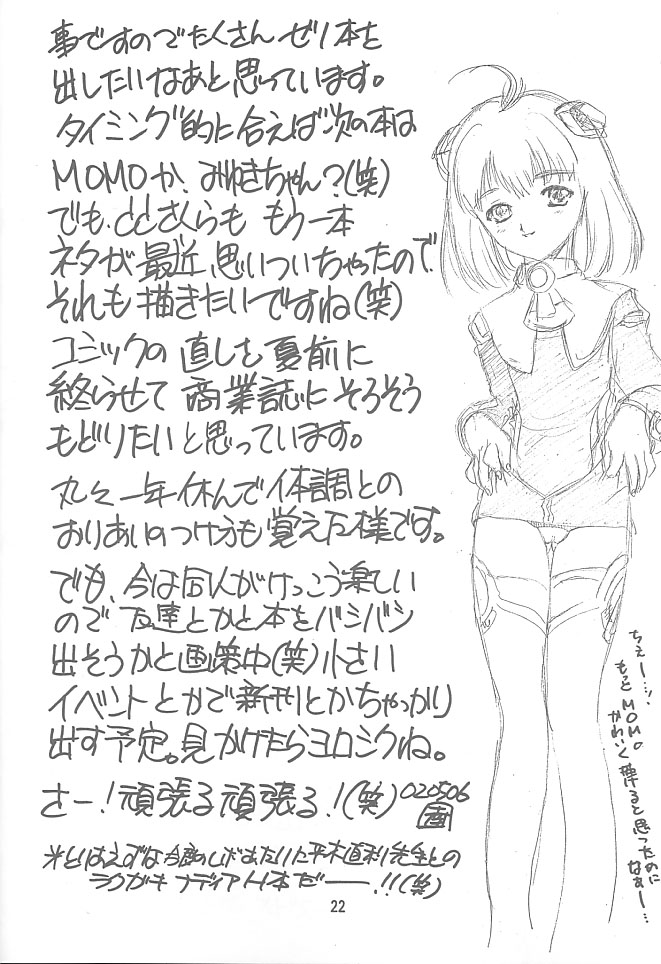 事ですのでたくさん ゼノ本を
出したいなあと思っています。
タイミング的に合えば次の本は
MOMOか、みゆきちゃん?(笑)
でも、ととさくらも もう一本
ネタが最近、思いついちゃったので、
それも描きたいですね(笑)
コミックの直しを夏前に
終らせて 商業誌にそろそろ
もどりたいと思っています。
丸々一年休んで体調との
おりあいのつけ方も覚えた様です。
でも、今は同人がけっこう楽しい
ので 友達とかと本をバシバシ
出そうかと画策中(笑)小さい
イベントとかで新刊とかちゃっかり
出す予定。見かけたらヨロシクね。
さー!頑張る頑張る!(笑)020506
※とりあえずは今度の 平木直利先生との
ラクガキ ナディアH本だーー!!(笑)
ちぇー…、
もっと MOMO
かわいく 描けると思ったのに
なぁー…
22